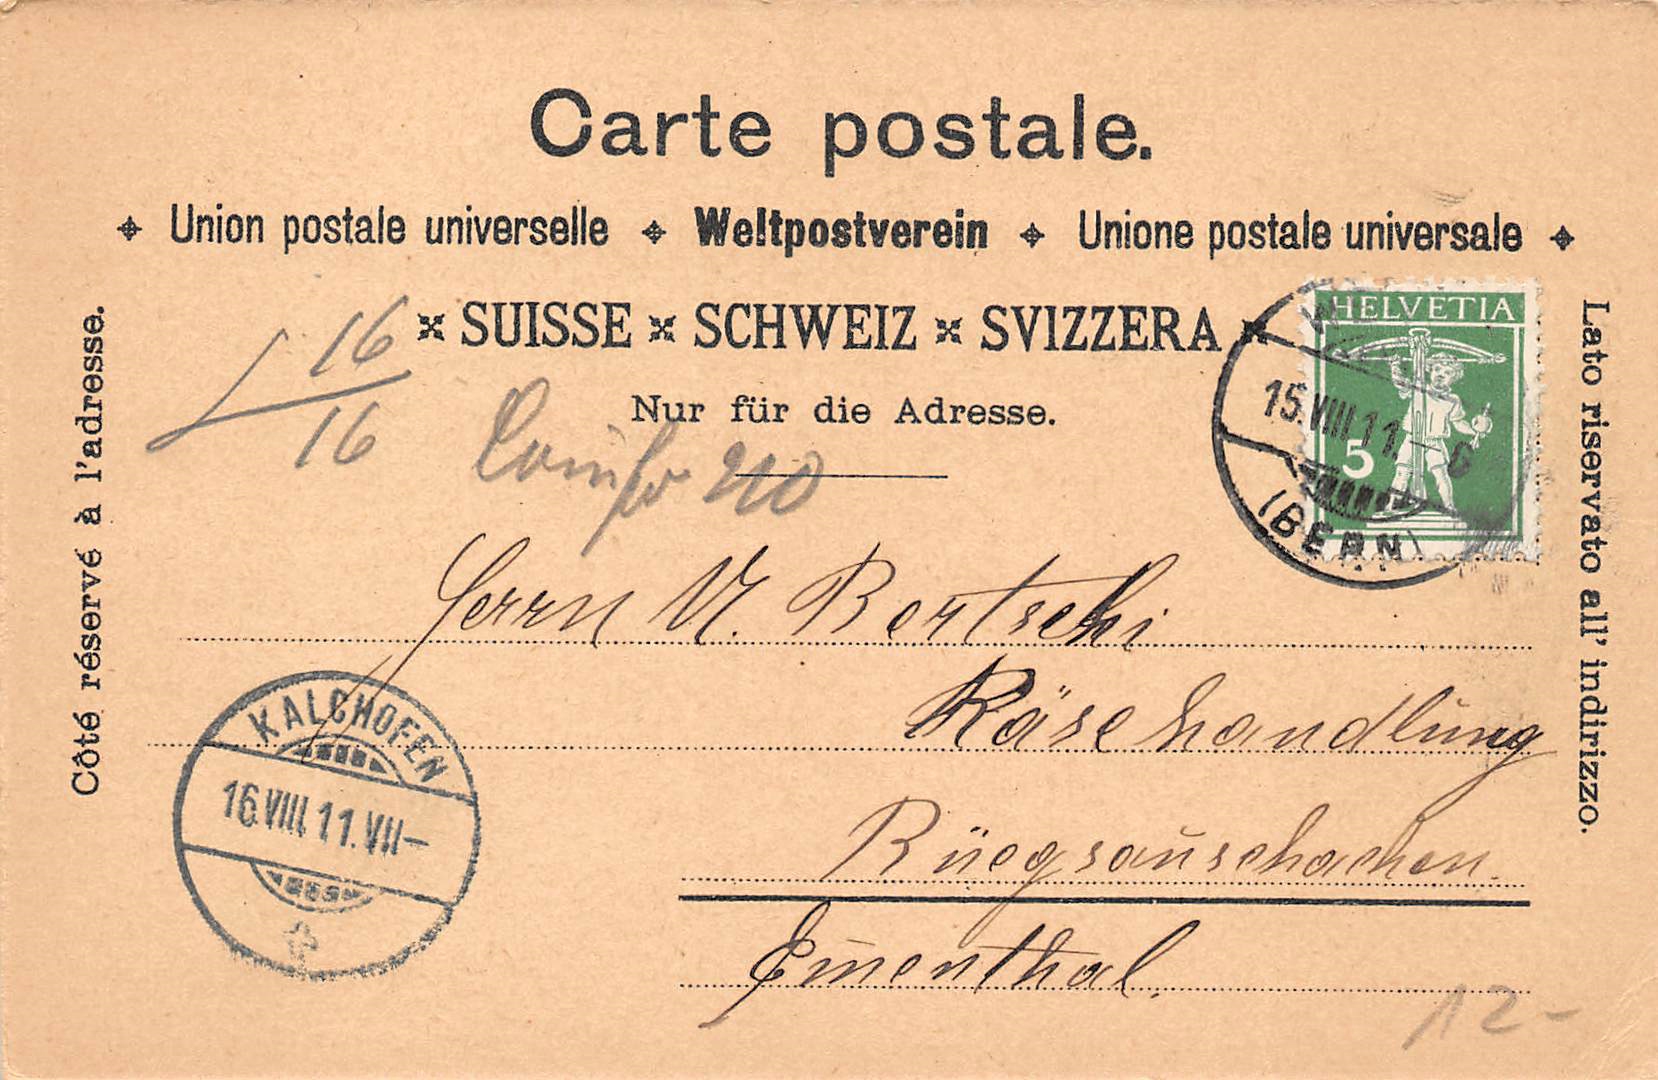 Carte postale.
Union postale universelle Weltpostverein Unione postale universale
SUISSE SCHWEIZ SVIZZERA
Nur für die Adresse.
Côté réservé à l'adresse.
Lato riservato all' indirizzo.
HELVETIA
5
15.VIII.11.
(BERN)
16
16
210
Herrn V. Bertschi
Käsehandlung
Rüegsauschachen.
Emmenthal.
KALCHOFEN
16.VIII.11.VII-
12-